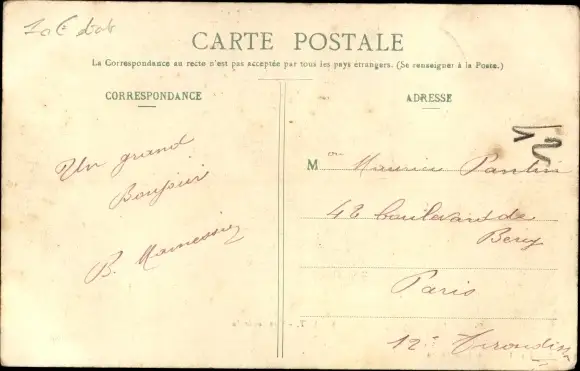 CARTE POSTALE
La Correspondance au recto n'est pas acceptée par tous les pays étrangers. (Se renseigner à la Poste.)
CORRESPONDANCE
Un grand
Bonjour
B.
ADRESSE
M Maurice Pantin
48 boulevard de
Bercy
Paris
12e